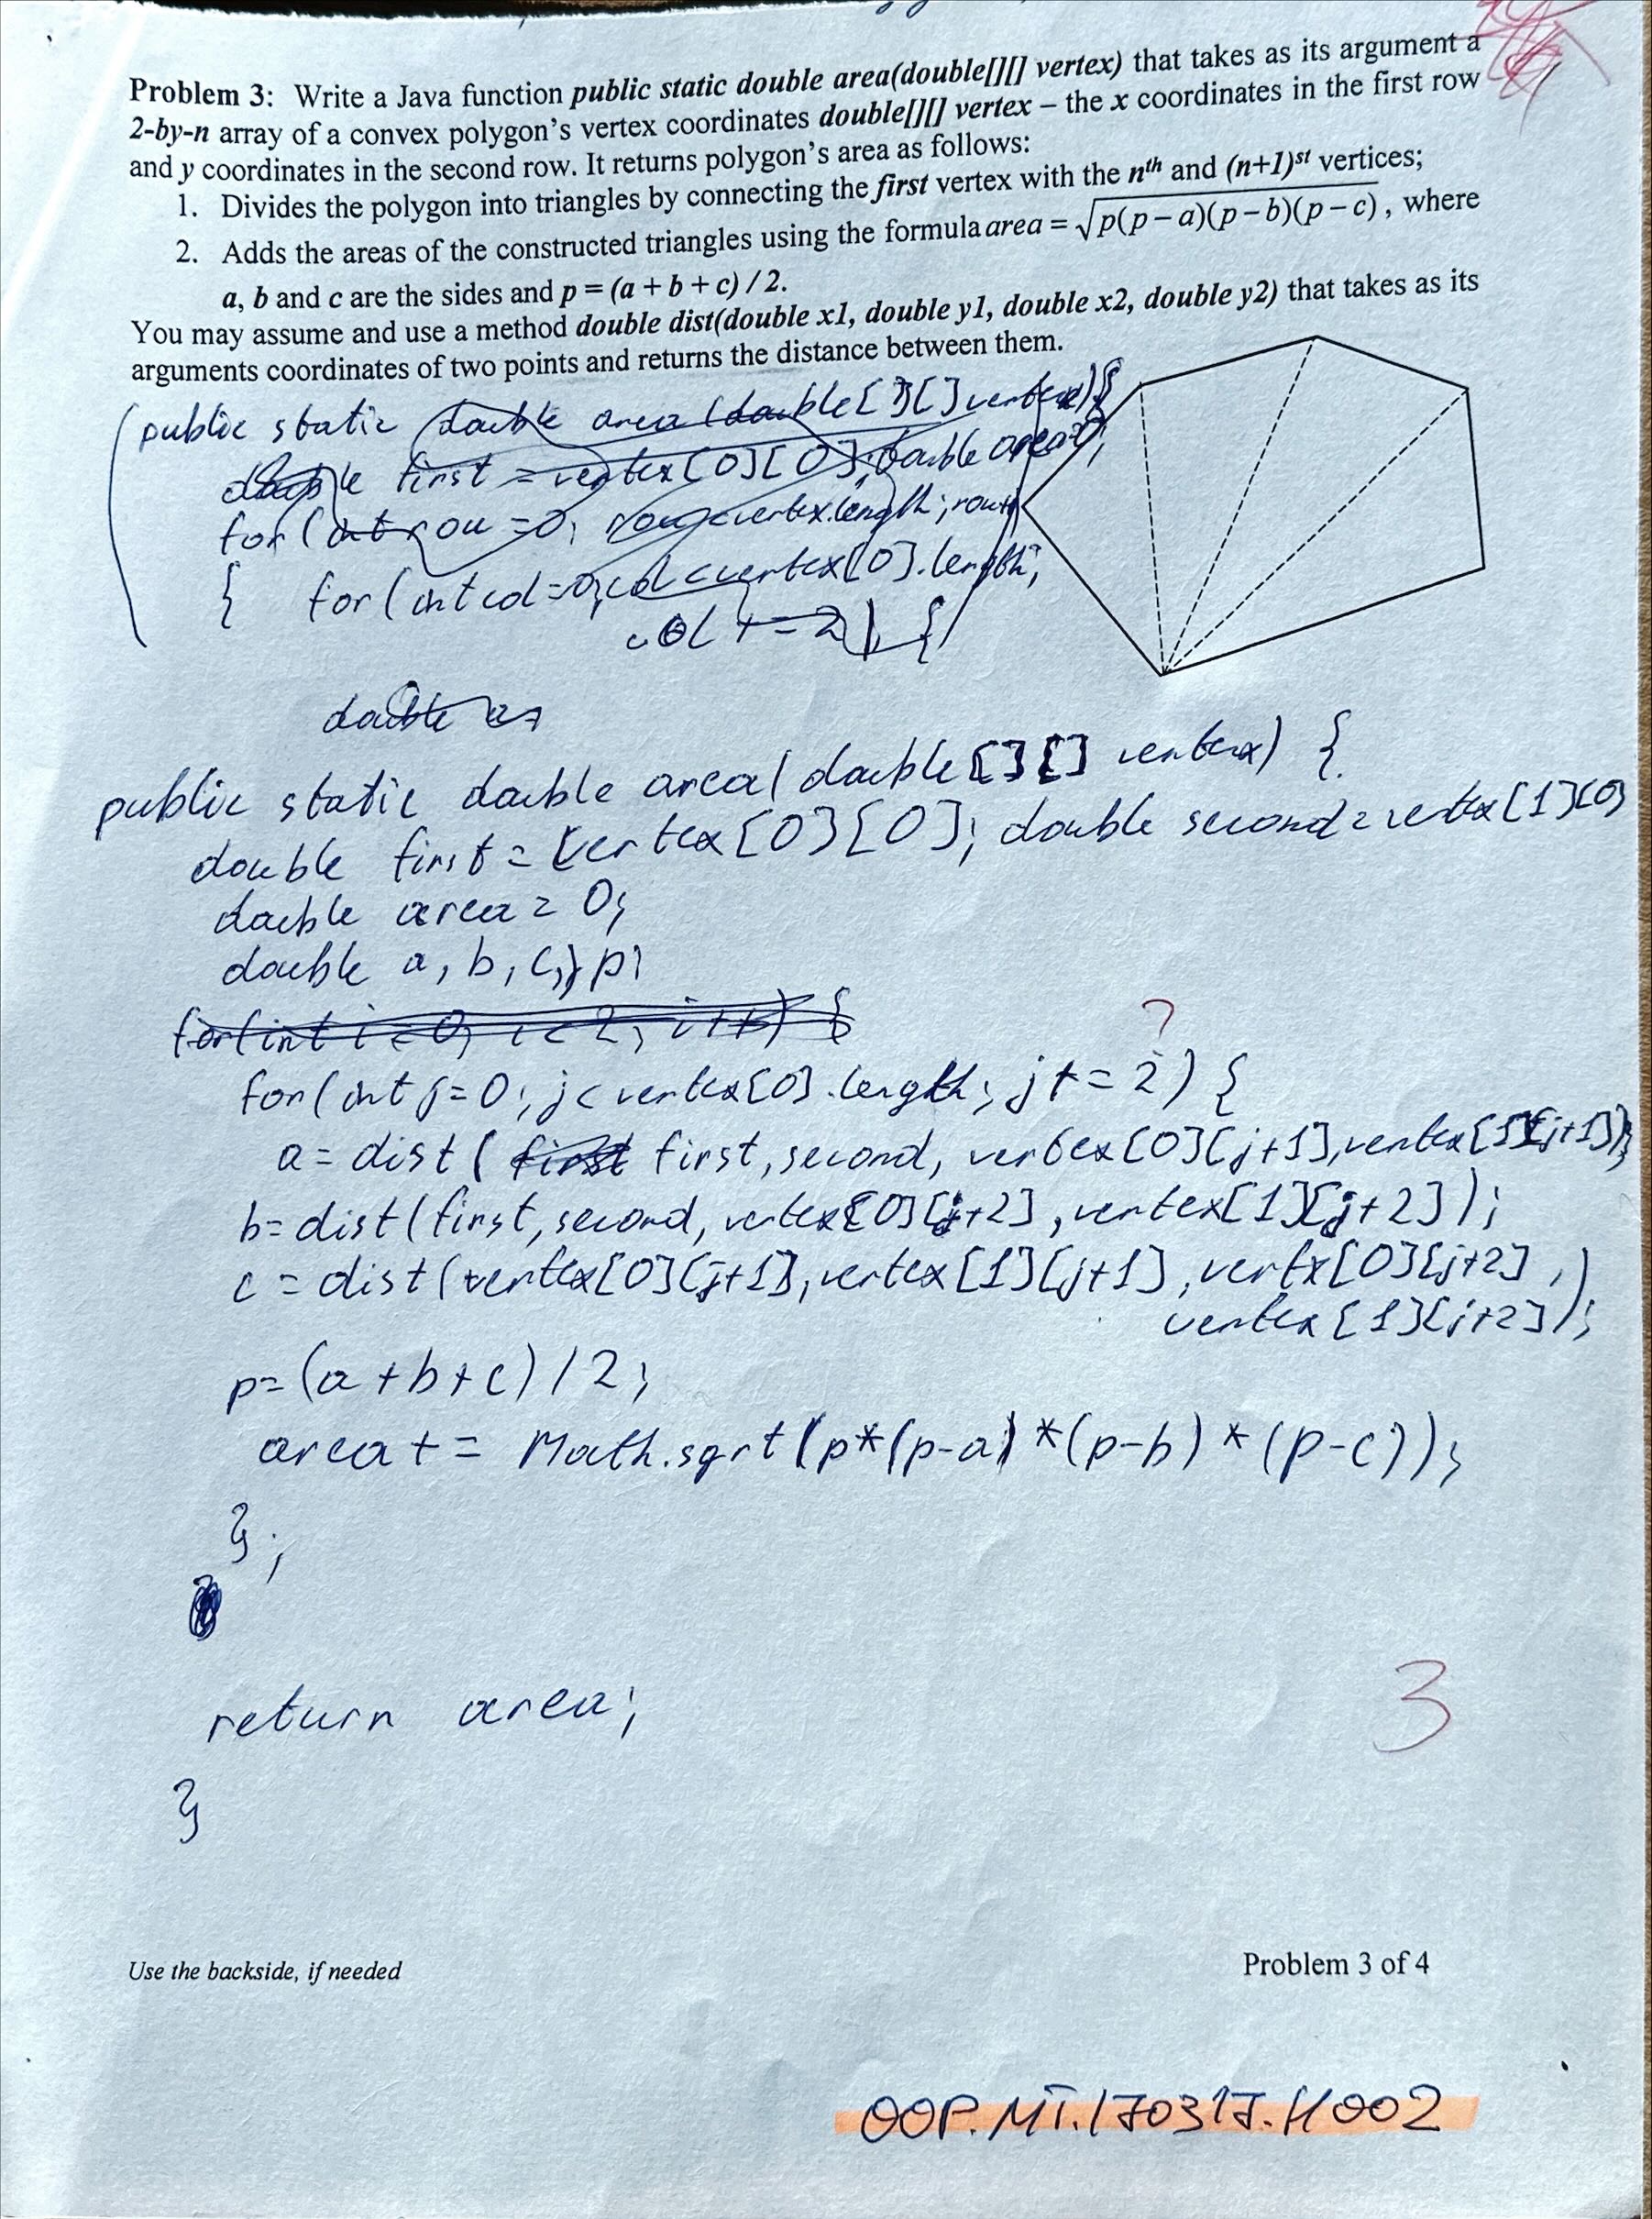 Problem 3: Write a Java function public static double area(double[][] vertex) that takes as its argument a
2-by-n array of a convex polygon's vertex coordinates double[][] vertex – the x coordinates in the first row
and y coordinates in the second row. It returns polygon's area as follows:
1. Divides the polygon into triangles by connecting the first vertex with the nth and (n+1)st vertices;
2. Adds the areas of the constructed triangles using the formula area = √p(p – a)(p – b)(p – c) , where
a, b and c are the sides and p = (a + b + c) / 2.
You may assume and use a method double dist(double x1, double y1, double x2, double y2) that takes as its
arguments coordinates of two points and returns the distance between them.
public static double area (double[][] vertex) {
double first = vertex[0][0]; double area=0;
for (int row =0; row<vertex.length; row++)
{ for (int col=0; col<vertex[0].length;
col += 2) {
double a
public static double area( double[][] vertex) {
double first = vertex[0][0]; double second = vertex[1][0]
double area = 0;
double a, b, c, p;
for(int i=0; i<2; i++) {
?
for(int j=0; j<vertex[0].length; j+=2) {
a = dist ( first first, second, vertex[0][j+1], vertex[1][j+1]);
b= dist(first, second, vertex[0][j+2], vertex[1][j+2]);
c = dist(vertex[0][j+1], vertex[1][j+1], vertx[0][j+2],
vertex[1][j+2]);
p= (a+b+c)/2;
area += Math.sqrt(p*(p-a)*(p-b)*(p-c));
};
return area;
3
}
Use the backside, if needed
Problem 3 of 4
OOP.MT.170317.H002